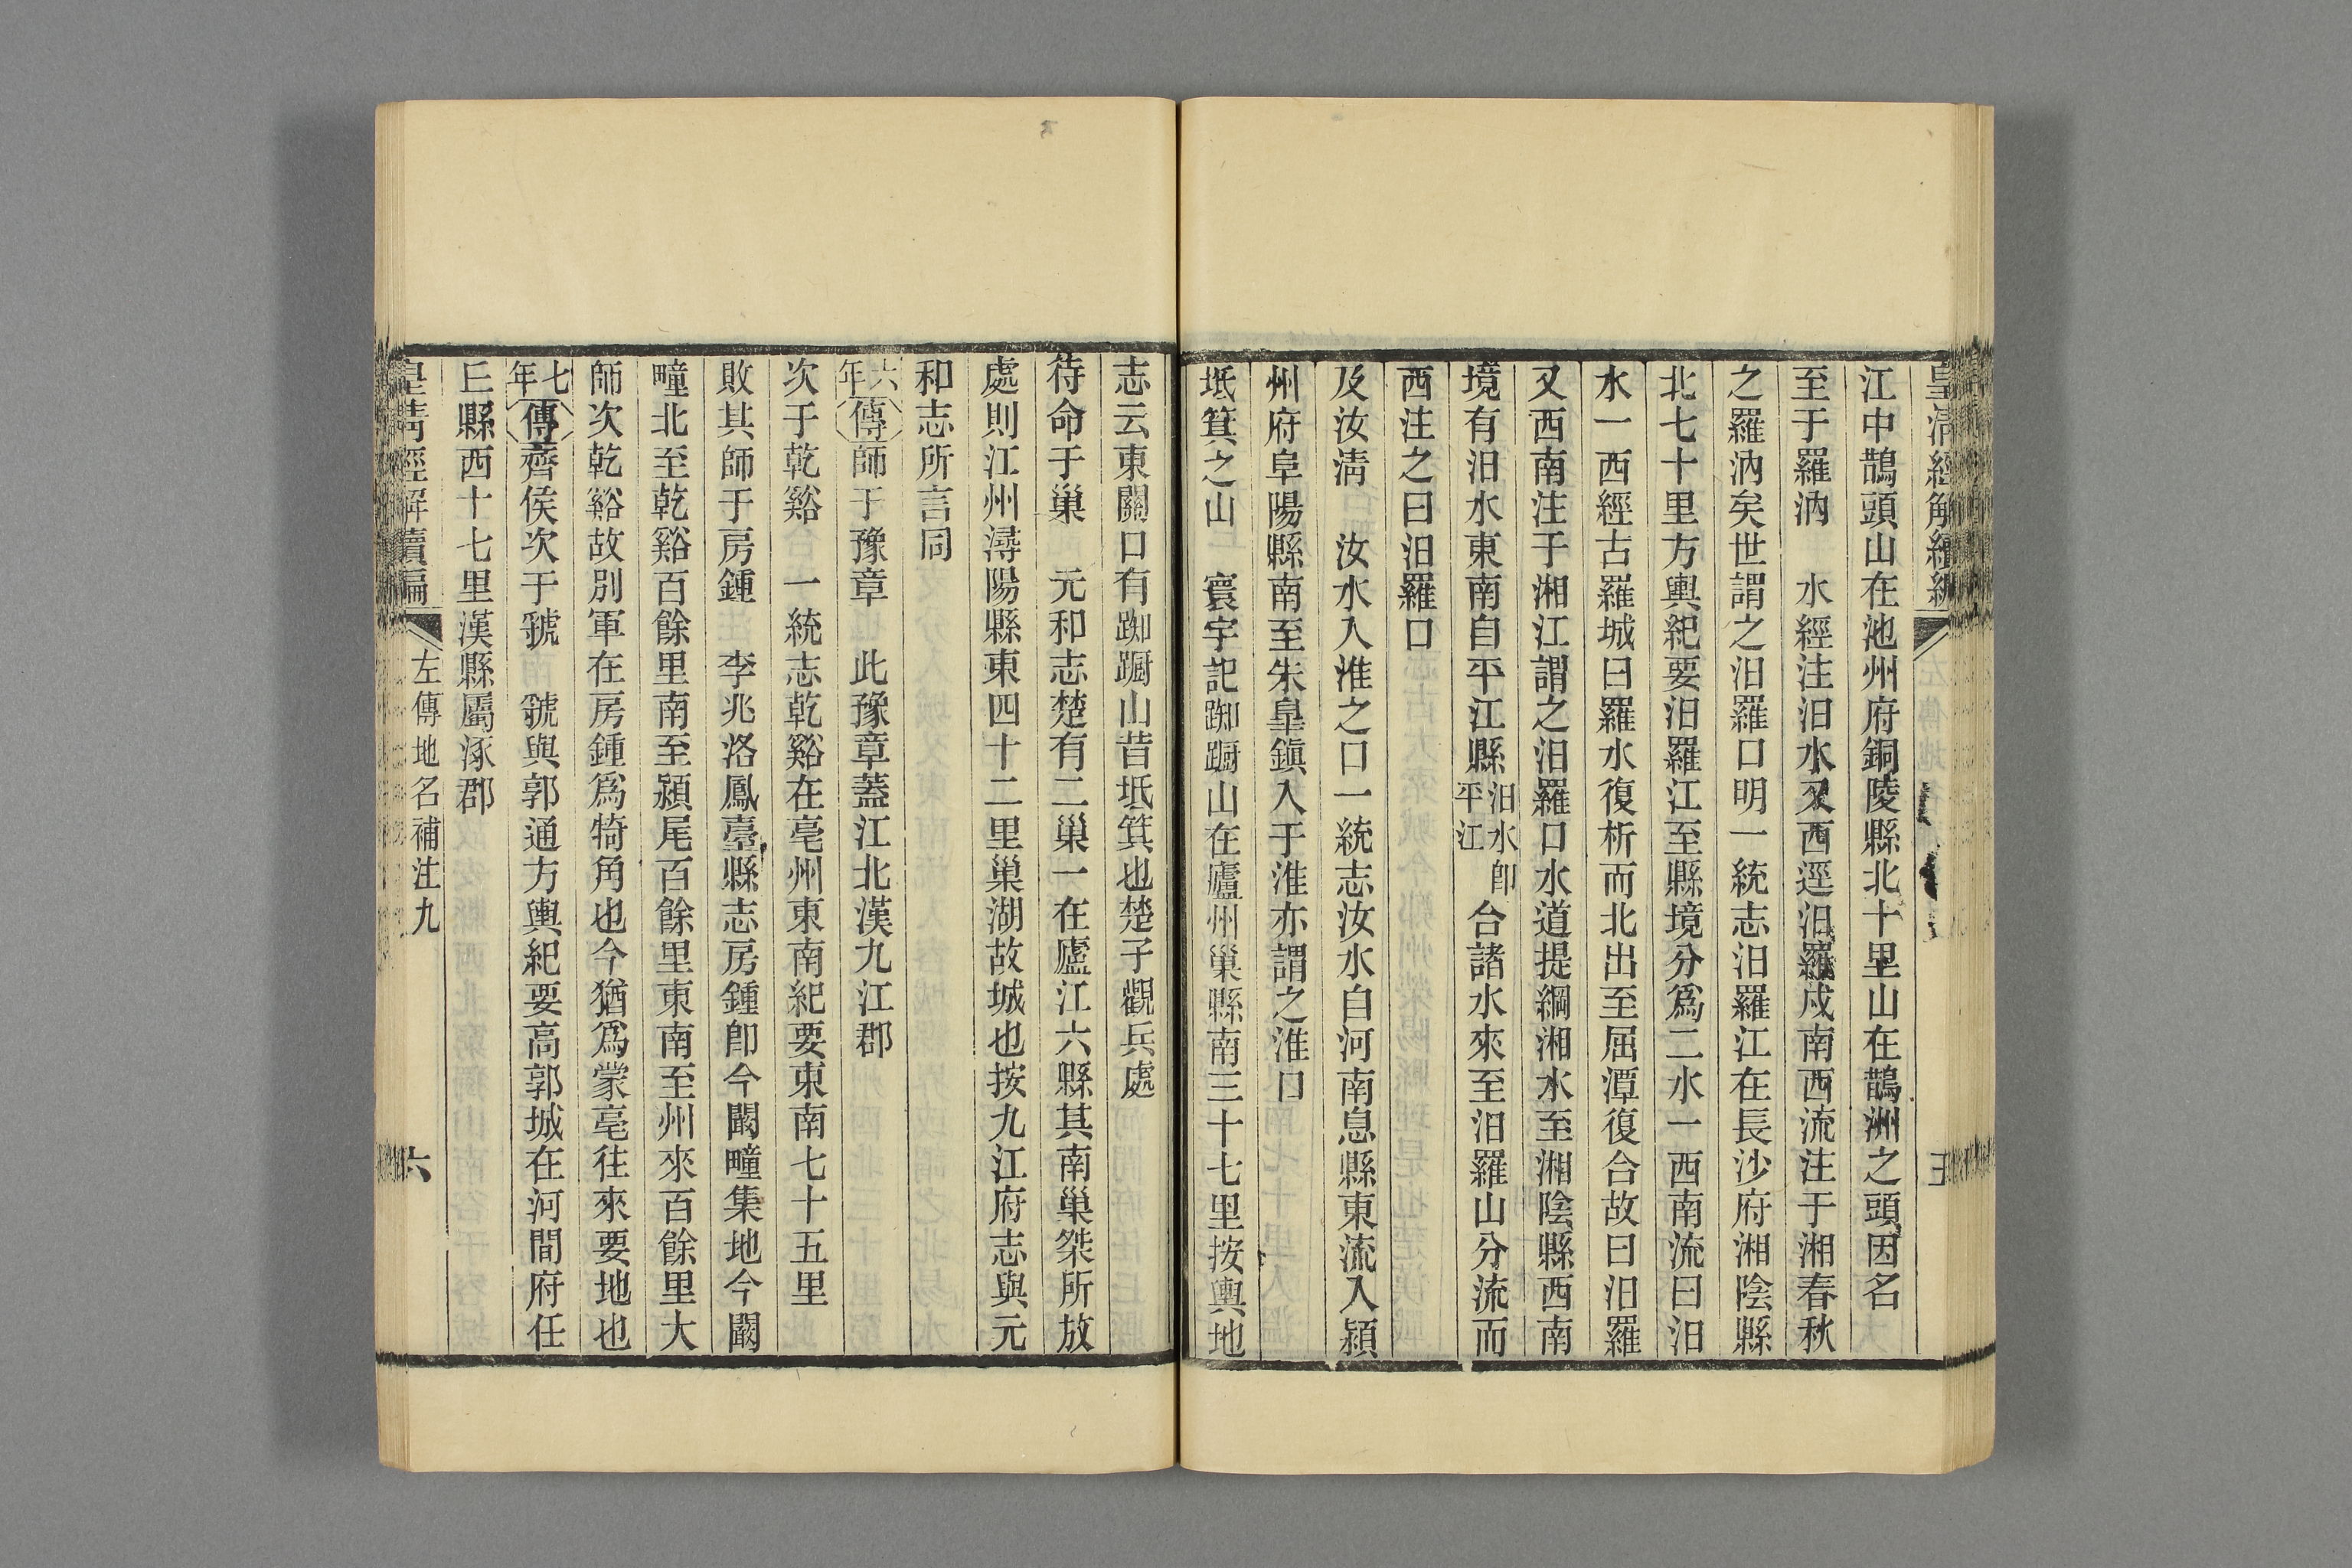 皇淸經解續編
江中鵲頭山在池州府銅陵縣北十里山在鵲洲之頭因名
至于羅汭　水經注汨水又西逕汨羅戍南西流注于湘春秋
之羅汭矣世謂之汨羅口明一統志汨羅江在長沙府湘陰縣
北七十里方輿紀要汨羅江至縣境分爲二水一西南流曰汨
水一西經古羅城曰羅水復析而北出至屈潭復合故曰汨羅
又西南注于湘江謂之汨羅口水道提綱湘水至湘陰縣西南
境有汨水東南自平江縣汨水卽平江合諸水來至汨羅山分流而
西注之曰汨羅口
及汝淸　汝水入淮之口一統志汝水自河南息縣東流入潁
州府阜陽縣南至朱皐鎭入于淮亦謂之淮口
坻箕之山　寰宇記踟躕山在廬州巢縣南三十七里按輿地
志云東關口有踟躕山昔坻箕也楚子觀兵處
待命于巢　元和志楚有二巢一在廬江六縣其南巢桀所放
處則江州潯陽縣東四十二里巢湖故城也按九江府志與元
和志所言同
六年傳師于豫章　此豫章蓋江北漢九江郡
次于乾谿　一統志乾谿在亳州東南紀要東南七十五里
敗其師于房鍾　李兆洛鳳臺縣志房鍾卽今闞疃集地今闞
疃北至乾谿百餘里南至潁尾百餘里東南至州來百餘里大
師次乾谿故別軍在房鍾爲犄角也今猶爲蒙亳往來要地也
七年傳齊侯次于虢　虢與郭通方輿紀要高郭城在河間府任
丘縣西十七里漢縣屬涿郡
皇淸經解續編　左傳地名補注九　六